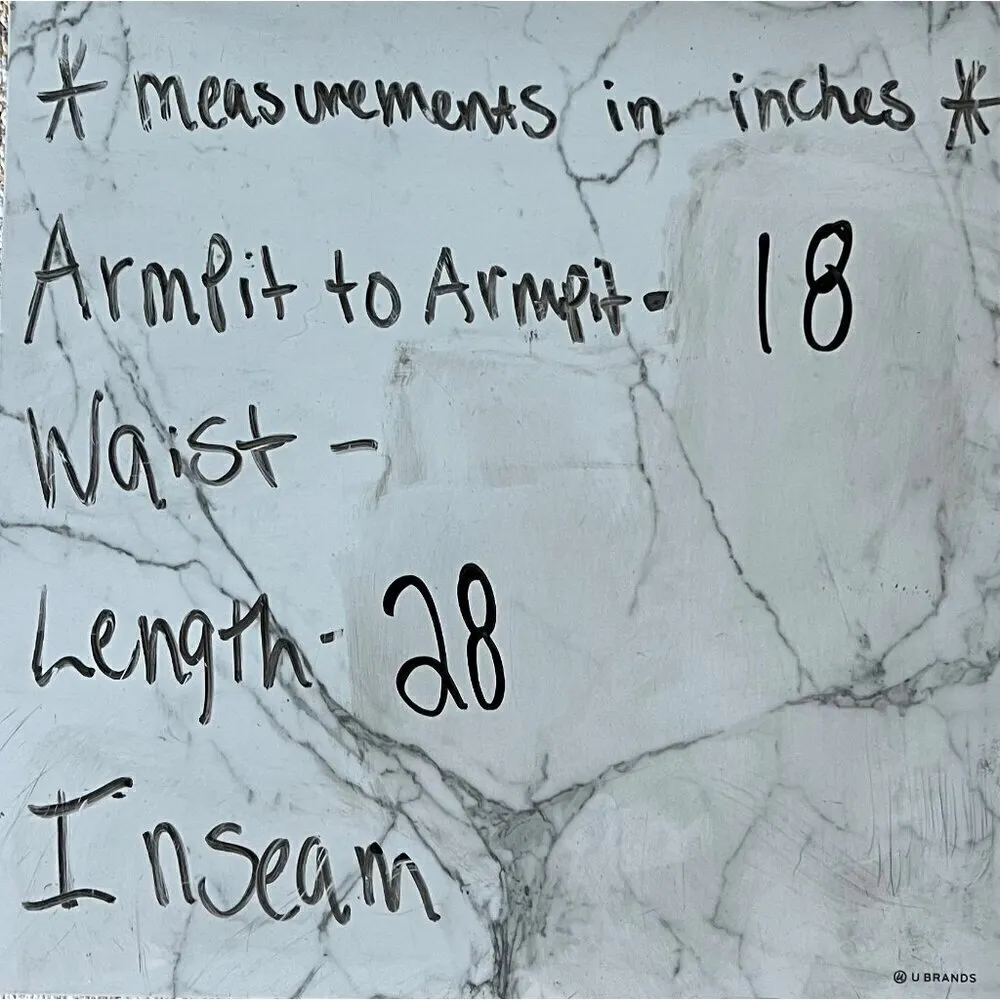 * measurements in inches *
Armpit to Armpit - 18
Waist -
Length - 28
Inseam
U BRANDS